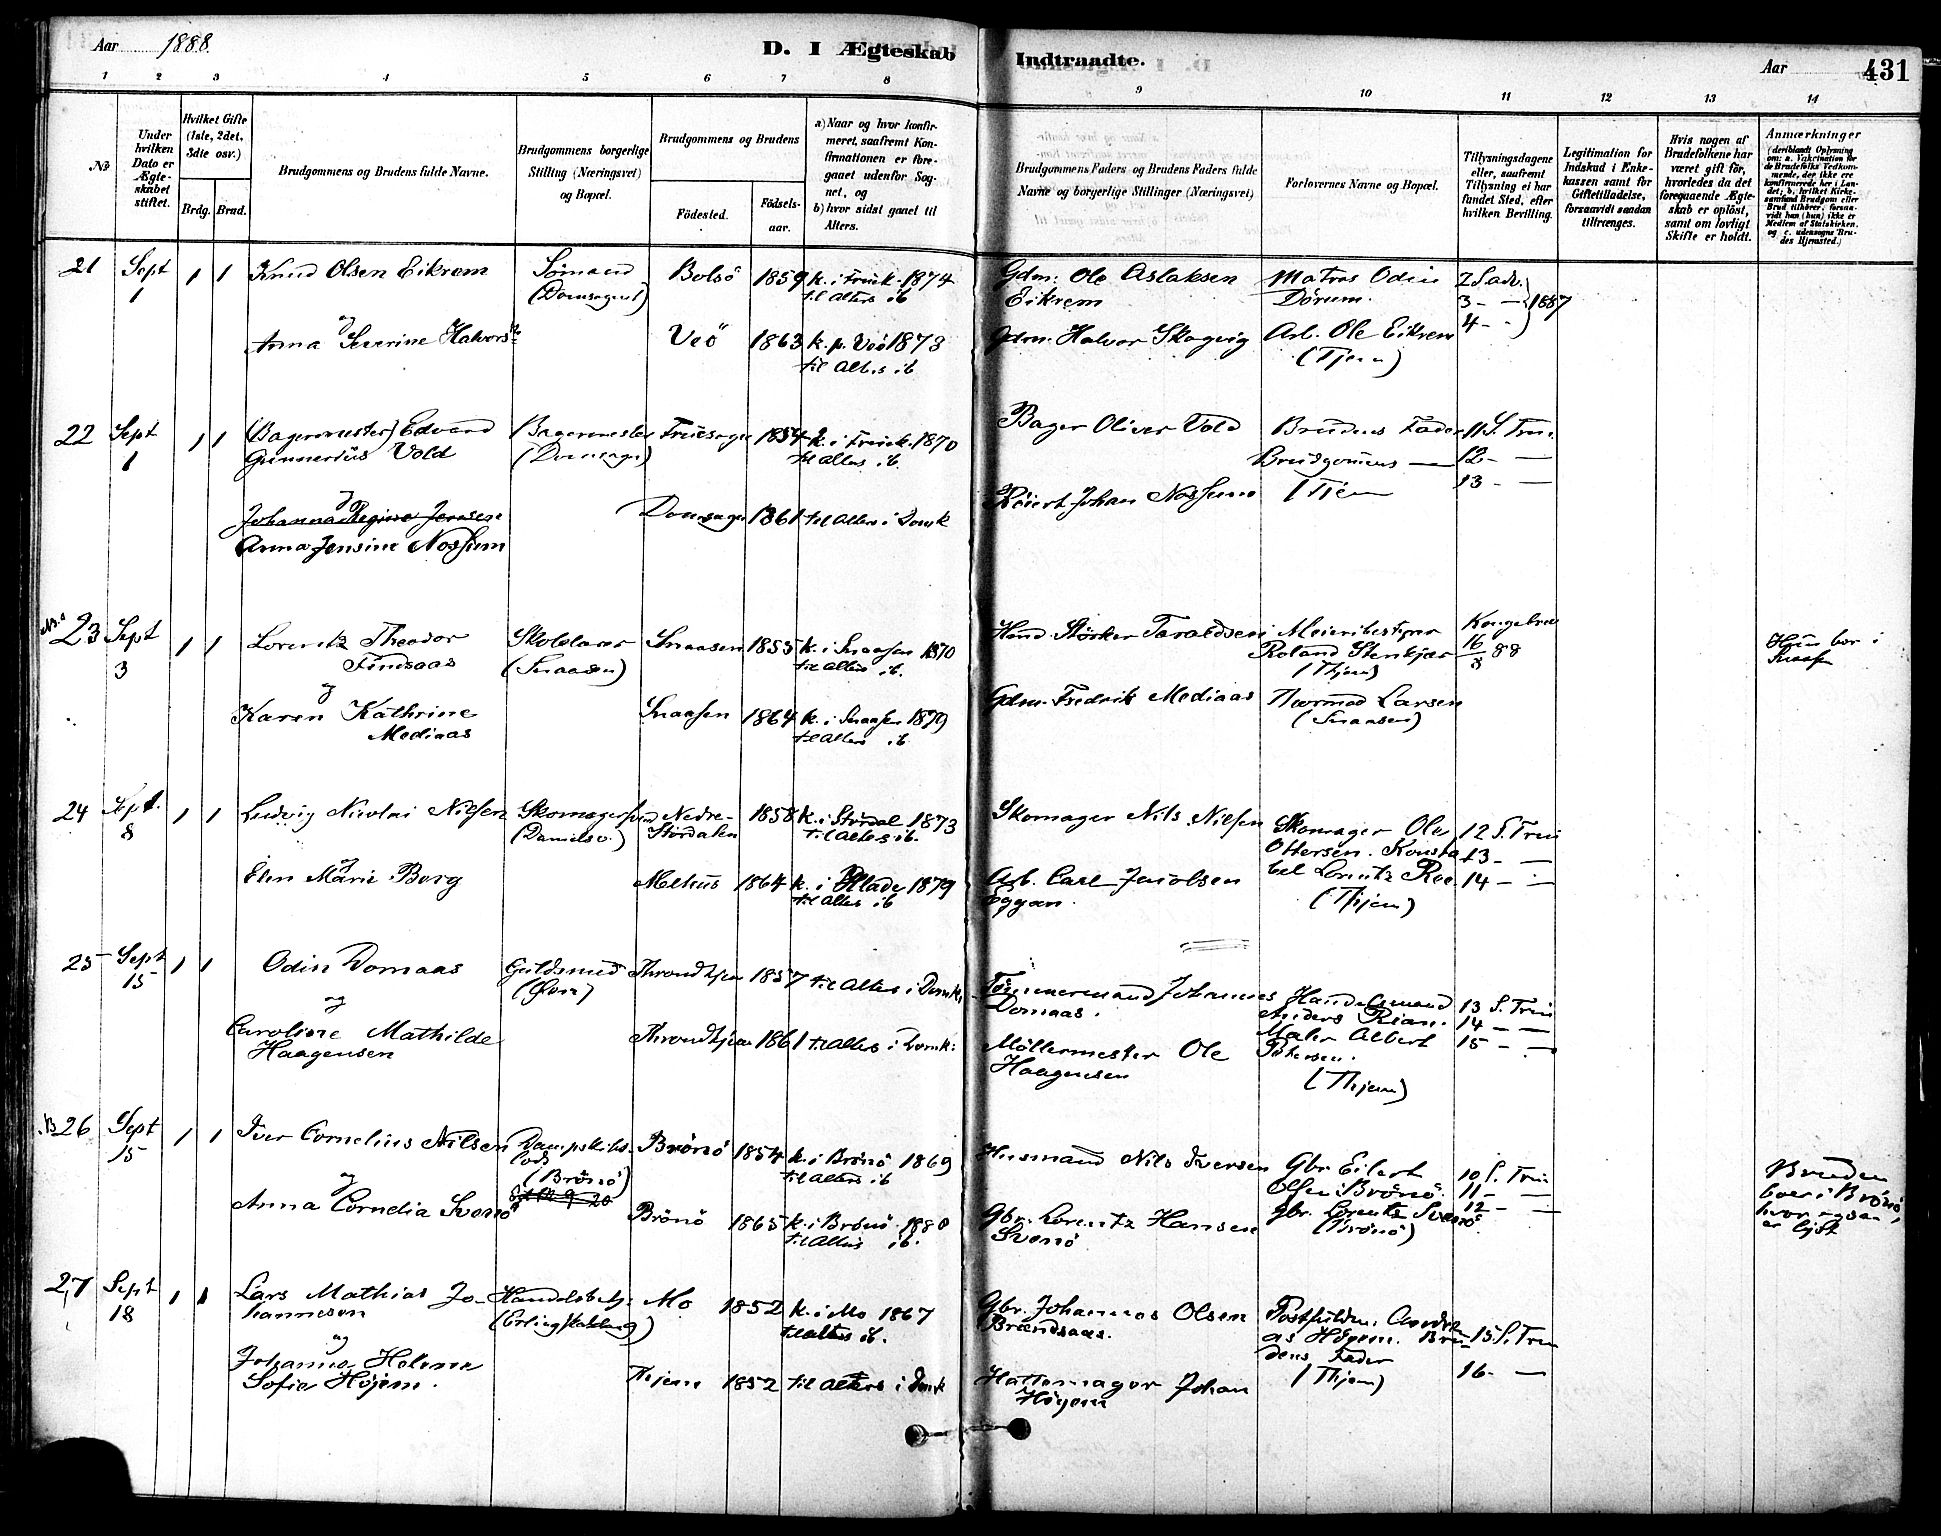 Aar 1888.
D. I Ægteskab Indtraadte.
Aar
431
1 2 3 4 5 6 7 8 9 10 11 12 13 14
No
Under hvilken Dato er Ægteskabet stiftet.
Hvilket Gifte (1ste, 2det, 3die osv.)
Brdg. Brud.
Brudgommens og Brudens fulde Navne.
Brudgommens borgerlige Stilling (Næringsvei) og Bopæl.
Brudgommens og Brudens
Födested. Födsels-aar.
a) Naar og hvor konfirmeret, saafremt Konfirmationen er foregaaet udenfor Sognet, og
b) hvor sidst gaaet til Alters.
Brudgommens Faders og Brudens Faders fulde Navne og borgerlige Stillinger (Næringsvei)
Forlovernes Navne og Bopæl.
Tillysningsdagene eller, saafremt Tillysning ei har fundet Sted, efter hvilken Bevilling.
Legitimation for Indskud i Enkekassen samt for Giftetilladelse, forsaavidt saadan tiltrænges.
Hvis nogen af Brudefolkene har været gift før, hvorledes da det foregaaende Ægteskab er oplöst, samt om lovligt Skifte er holdt.
Anmærkninger
(deriblandt Oplysning om: a. Vakcination for de Brudefolks Vedkommende, der ikke ere konfirmerede her i Landet; b. hvilket Kirkesamfund Brudgom eller Brud tilhörer, forsaavidt han (hun) ikke er Medlem af Statskirken, og c. udensogns Brudes Hjemsted.)
21 Sept 1 1 1 Knud Olsen Eikrem Sömand (Domsognet) Bolsö 1859 k. i Fruek. 1874 til Alters ib Gdm: Ole Aslaksen Eikrem Matros Odin Dörum. 2 S adv. 3 - — 4 - - 1887
og
Anna Severine Halvorsd Veö 1863 k. p. Veö 1873 til Alters ib Gdm. Halvor Skagvig Arb. Ole Eikrem (Tjem)
22 Sept 1 1 1 (Bagermester) Edvard Gunnerius Vold Bagermester (Domsogn) Fruesogn 1854 k. i Fruek. 1870 til Alters ib. Bager Oliver Vold Brudens Fader Brudgomens — (Tjem 11 S. Trin. 12 - — 13 - —
og
Johanna Regine Jensen
Anna Jensine Nossum Domsogn 1861 til Alters i Domk Johan Nossum
23 Sept 3 1 1 Lorentz Theodor Finsaas Skolelærer (Snaasen) Snaasen 1855 k. i Snaasen 1870 til Alters ib. Störker Taraldsen Meieribestyrer Roland Stenkjær (Thjem) Kongebrev 16/8 88 Hun bor i Snaasen
og
Karen Kathrine Mediaas Snaasen 1864 k. i Snaasen 1879 til Alters ib Gdm. Fredrik Mediaas Thormod Larsen (Snaasen)
24 Sept. 8 1 1 Ludvig Nicolai Nilsen Skomagersvend Nedre-Stördalen 1858 k. i Stördal 1873 til Alters ib. Skomager Nils Nilsen Skomager Ole Ottersen. Konstabel Lorentz Roe (Thjem) 12 S. Trin 13 - — 14 - —
og
Elen Marie Berg Melhus 1864 k. i Hlade 1879 til Alters ib Arb. Carl Jacobsen Eggan.
25 Sept 15 1 1 Odin Domaas Guldsmed Throndhjem 1857 til Alters i Domk. Tömmermand Johannes Domaas. Handelsmand Anders Rian. Maler Albert Petersen. (Thjem) 13 S. Trin 14 - — 15 - —
og
Caroline Mathilde Haagensen Throndhjem 1861 til Alters i Domk: Möllermester Ole Haagensen
26 Sept 15 1 1 Iver Cornelius Nilsen Dampskibslods (Brönö) Brönö 1854 k. i Brönö 1869 til Alters ib Husmand Nils Iversen Gbr Eilert Olsen Brönö. gbr. Lorentz Svenö (Brönö) 10 S. Trin 11 - — 12 - — Bruden boer i Brönö, hvor ogsaa er lyst
og
Anna Cornelia Svenö Brönö 1865 k. i Brönö 1880 til Alters ib. Gbr. Lorentz Hansen Svenö
27 Sept 18 1 1 Lars Mathias Johannesen Handelsbetj. Mo 1852 k. i Mo 1867 til Alters ib. Gbr. Johannes Olsen Brandsaas. Postfuldm. Andreas Höyem. Brudens Fader (Thjem) 15 S. Trin 16 - —
og
Johanna Helene Sofie Höjem. Thjem 1852 til Alters i Domk Hattemager Johan Höyem